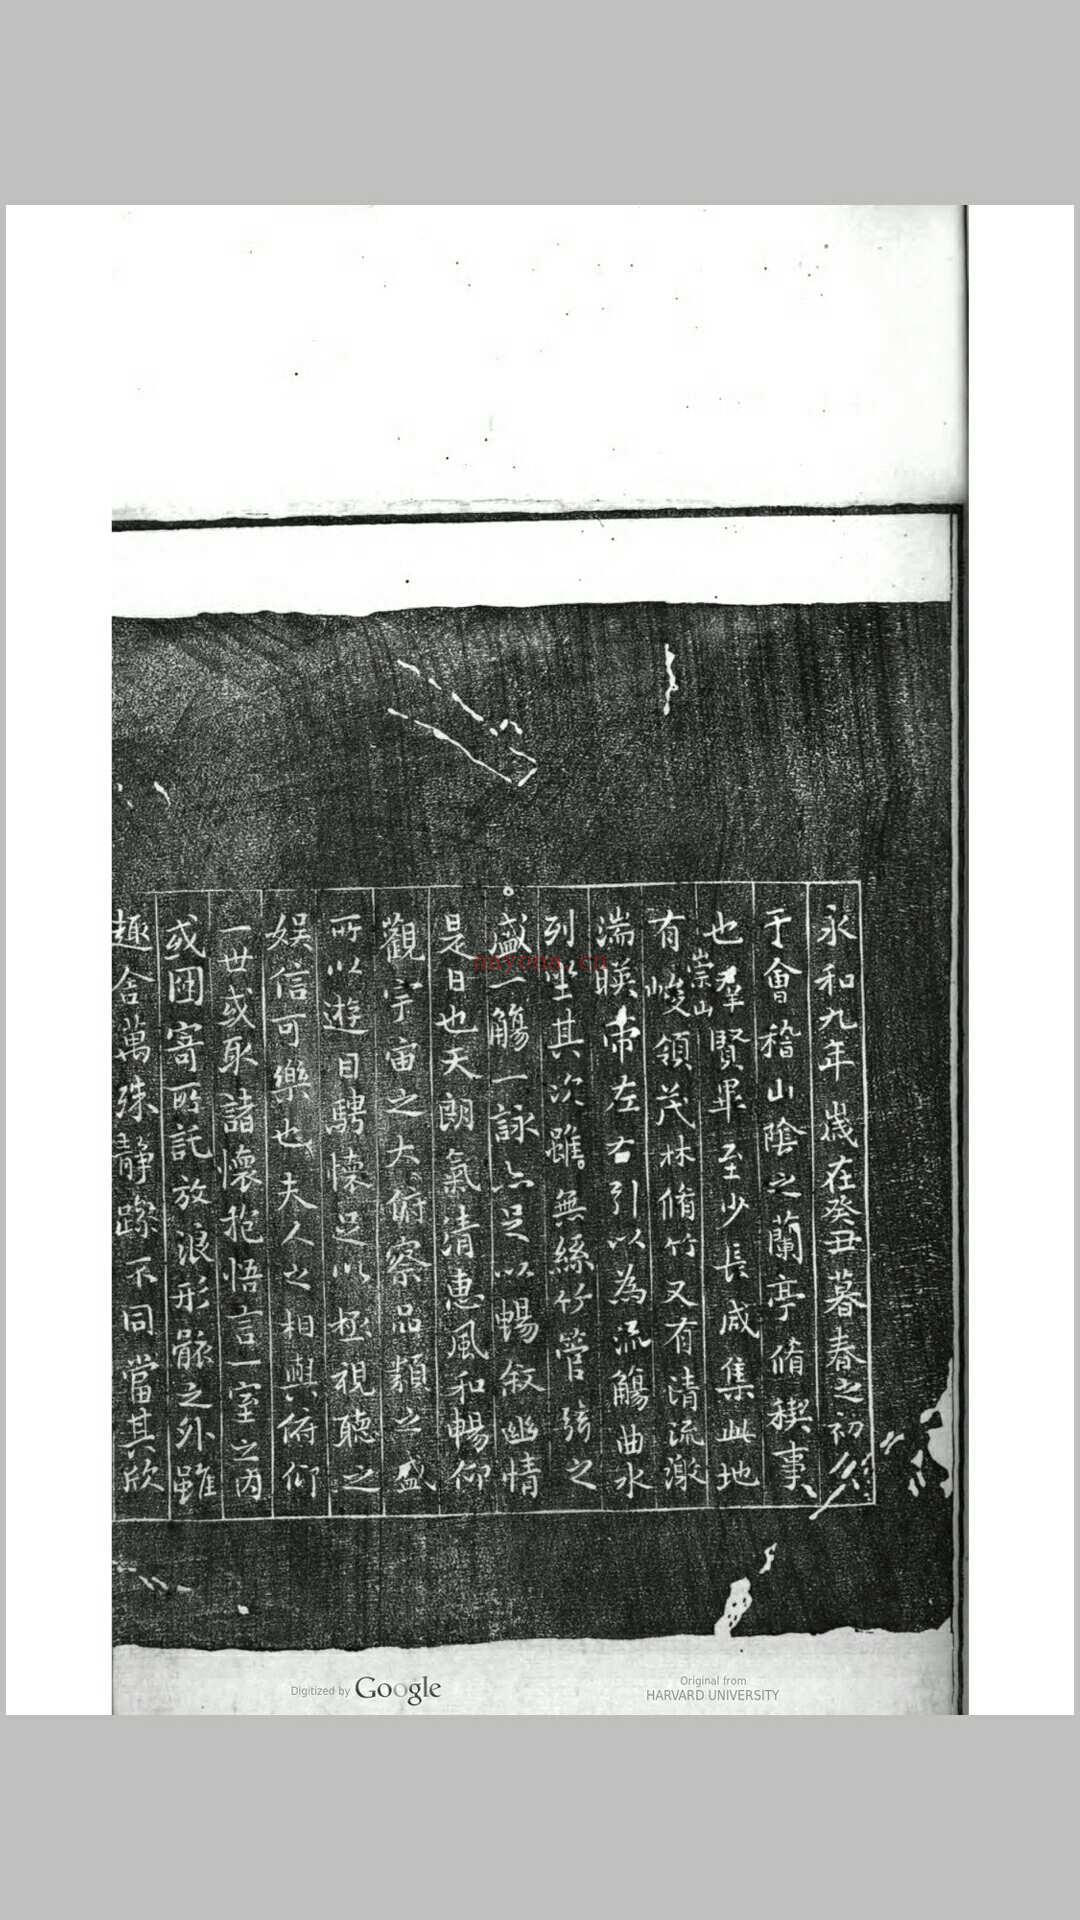 永和九年歲在癸丑暮春之初會
于會稽山陰之蘭亭脩稧事
也羣賢畢至少長咸集此地
有崇山峻領茂林脩竹又有清流激
湍暎帶左右引以為流觴曲水
列坐其次雖無絲竹管弦之
盛一觴一詠亦足以暢敘幽情
是日也天朗氣清惠風和暢仰
觀宇宙之大俯察品類之盛
所以遊目騁懷足以極視聽之
娛信可樂也夫人之相與俯仰
一世或取諸懷抱悟言一室之內
或因寄所託放浪形骸之外雖
趣舍萬殊靜躁不同當其欣
nayona.cn
Digitized by Google
Original from
HARVARD UNIVERSITY